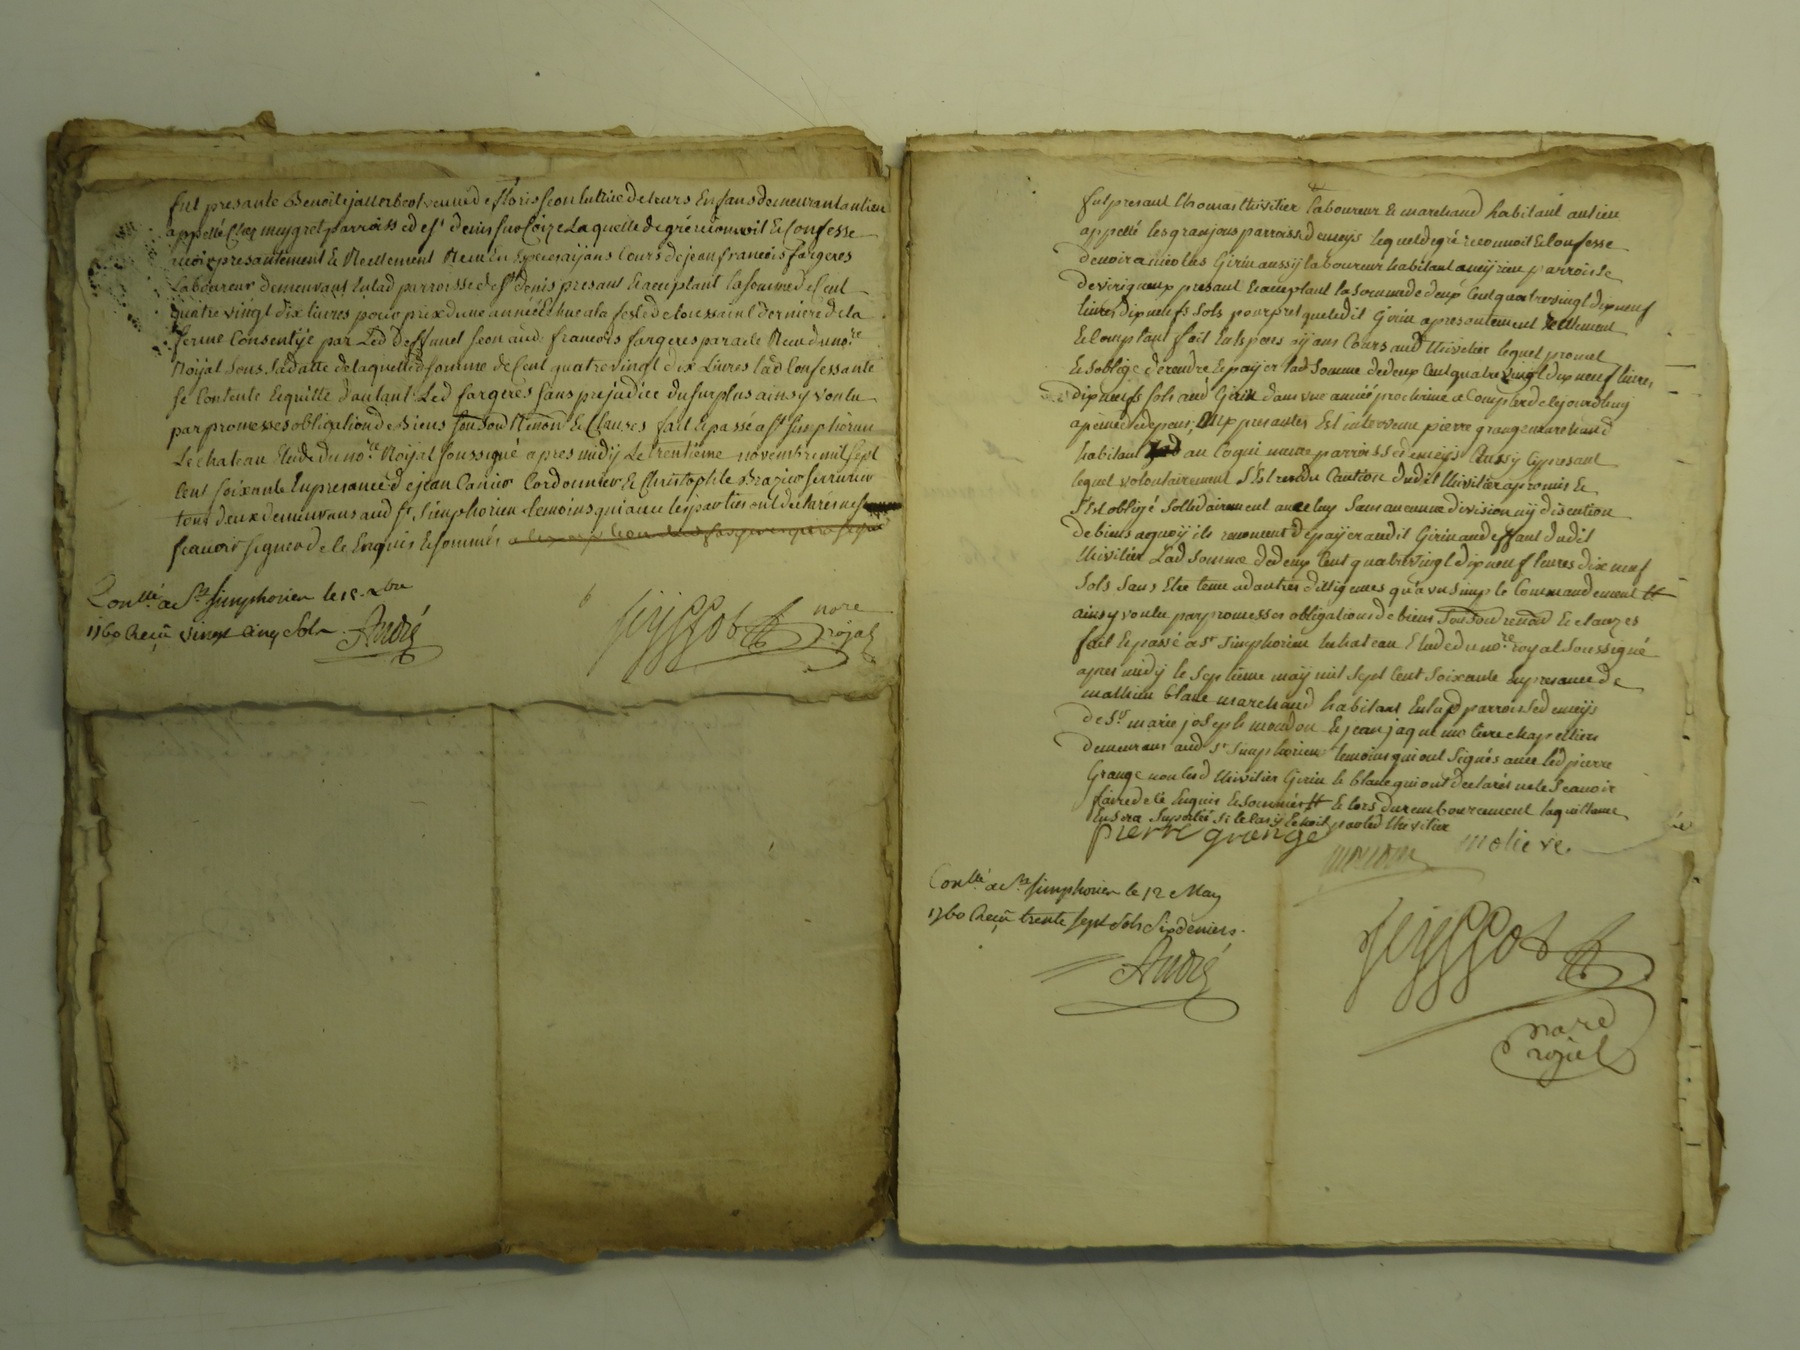 fut presante Benoite jallerbeot veuve de floris seon tutrice de leurs Enfans demeurant au lieu
appellé Chez meygret parroisse de st denis sur Coize Laquelle de gré reconnoit Et Confesse
avoir presantement Et Reellement Receu En Especes ayans Cours de jean francois fargeres
Laboureur demeurant En lad parroisse de st denis presant Et aceptant la somme de Cent
quatre vingt dix livres pour prix d'une année Echue a la feste de toussaint derniere de la
ferme Consentÿe par Led Deffunct seon aud francois fargeres par acte Receu du nore
Roÿal sous sa datte de laquelle d somme de Cent quatre vingt dix Livres lad Confessante
se Contente Et quitte d'autant Led fargeres sans prejudice du surplus ainsy voulu
par promesses obligation de Biens Renon Et Clauses fait Et passé a st simphorien
Le chateau Etude du nore Roÿal soussigné apres midÿ Le trentieme novembre mil sept
Cent soixante En presance de jean Cordonnier Et Christophle Brazier serrurier
tous deux demeurans aud st simphorien temoins qui avec les parties ont declarés ne
scavoir signer de ce Enquis Et sommés
Conllé a St Simphorien le 12 xbre
1760 Receu vingt cinq Sols André
nore
roÿal
fut presant thomas thivilier laboureur & marchand habitant au lieu
appellé les granjons parroisse de meÿs lequel de gré reconnoit & Confesse
devoir a nicolas Girin aussÿ laboureur habitant a meÿrieu parroisse
de virigneux presant & aceptant la somme de deux Cent quatre vingt dix neuf
livres dix neufs sols pour pret que ledit Girin a presentement reellement
& Comptant fait En Especes aÿans Cours aud thivilier lequel promet
& s'oblige de rendre & paÿer lad somme de deux Cent quatre vingt dix neuf livres
dix neufs sols aud Girin dans une année prochaine a Compter de ce jourdhuÿ
a peine de depens, Aux presantes Est intervenu pierre grange marchand
habitant au parroisse de meÿs Aussÿ Cy presant
lequel volontairement s'Est rendu Caution dudit thivilier a promis &
s'Est obligé sollidairement avec luy sans aucune division nÿ discution
de biens a quoy ils renoncent de paÿer audit Girin au deffaut dudit
thivilier lad somme de deux Cent quatre vingt dix neuf livres dix neuf
sols sans Etre tenu a d'autres dilligences qu'a un simple Commandement
ainsÿ voulu par promesses obligations de biens renon & clauzes
fait & passé a st simphorien le chateau Etude du nore royal soussigné
apres midÿ le septieme maÿ mil sept Cent soixante En presance de
mathieu blanc marchand habitant En lad parroisse de meÿs
de sr marie joseph & jean jaque chapelliers
demeurans aud st simphorien temoins qui ont signés avec led pierre
Grange non lesd thivilier Girin & blanc qui ont declarés ne le scavoir
faire de ce Enquis & sommés & lors du remboursement la quittance
En sera suportée par led thivilier
pierre grange
moliere
Conllé a St Simphorien le 12 May
1760 Receu trente sept Sols Six deniers
André
nore
royal